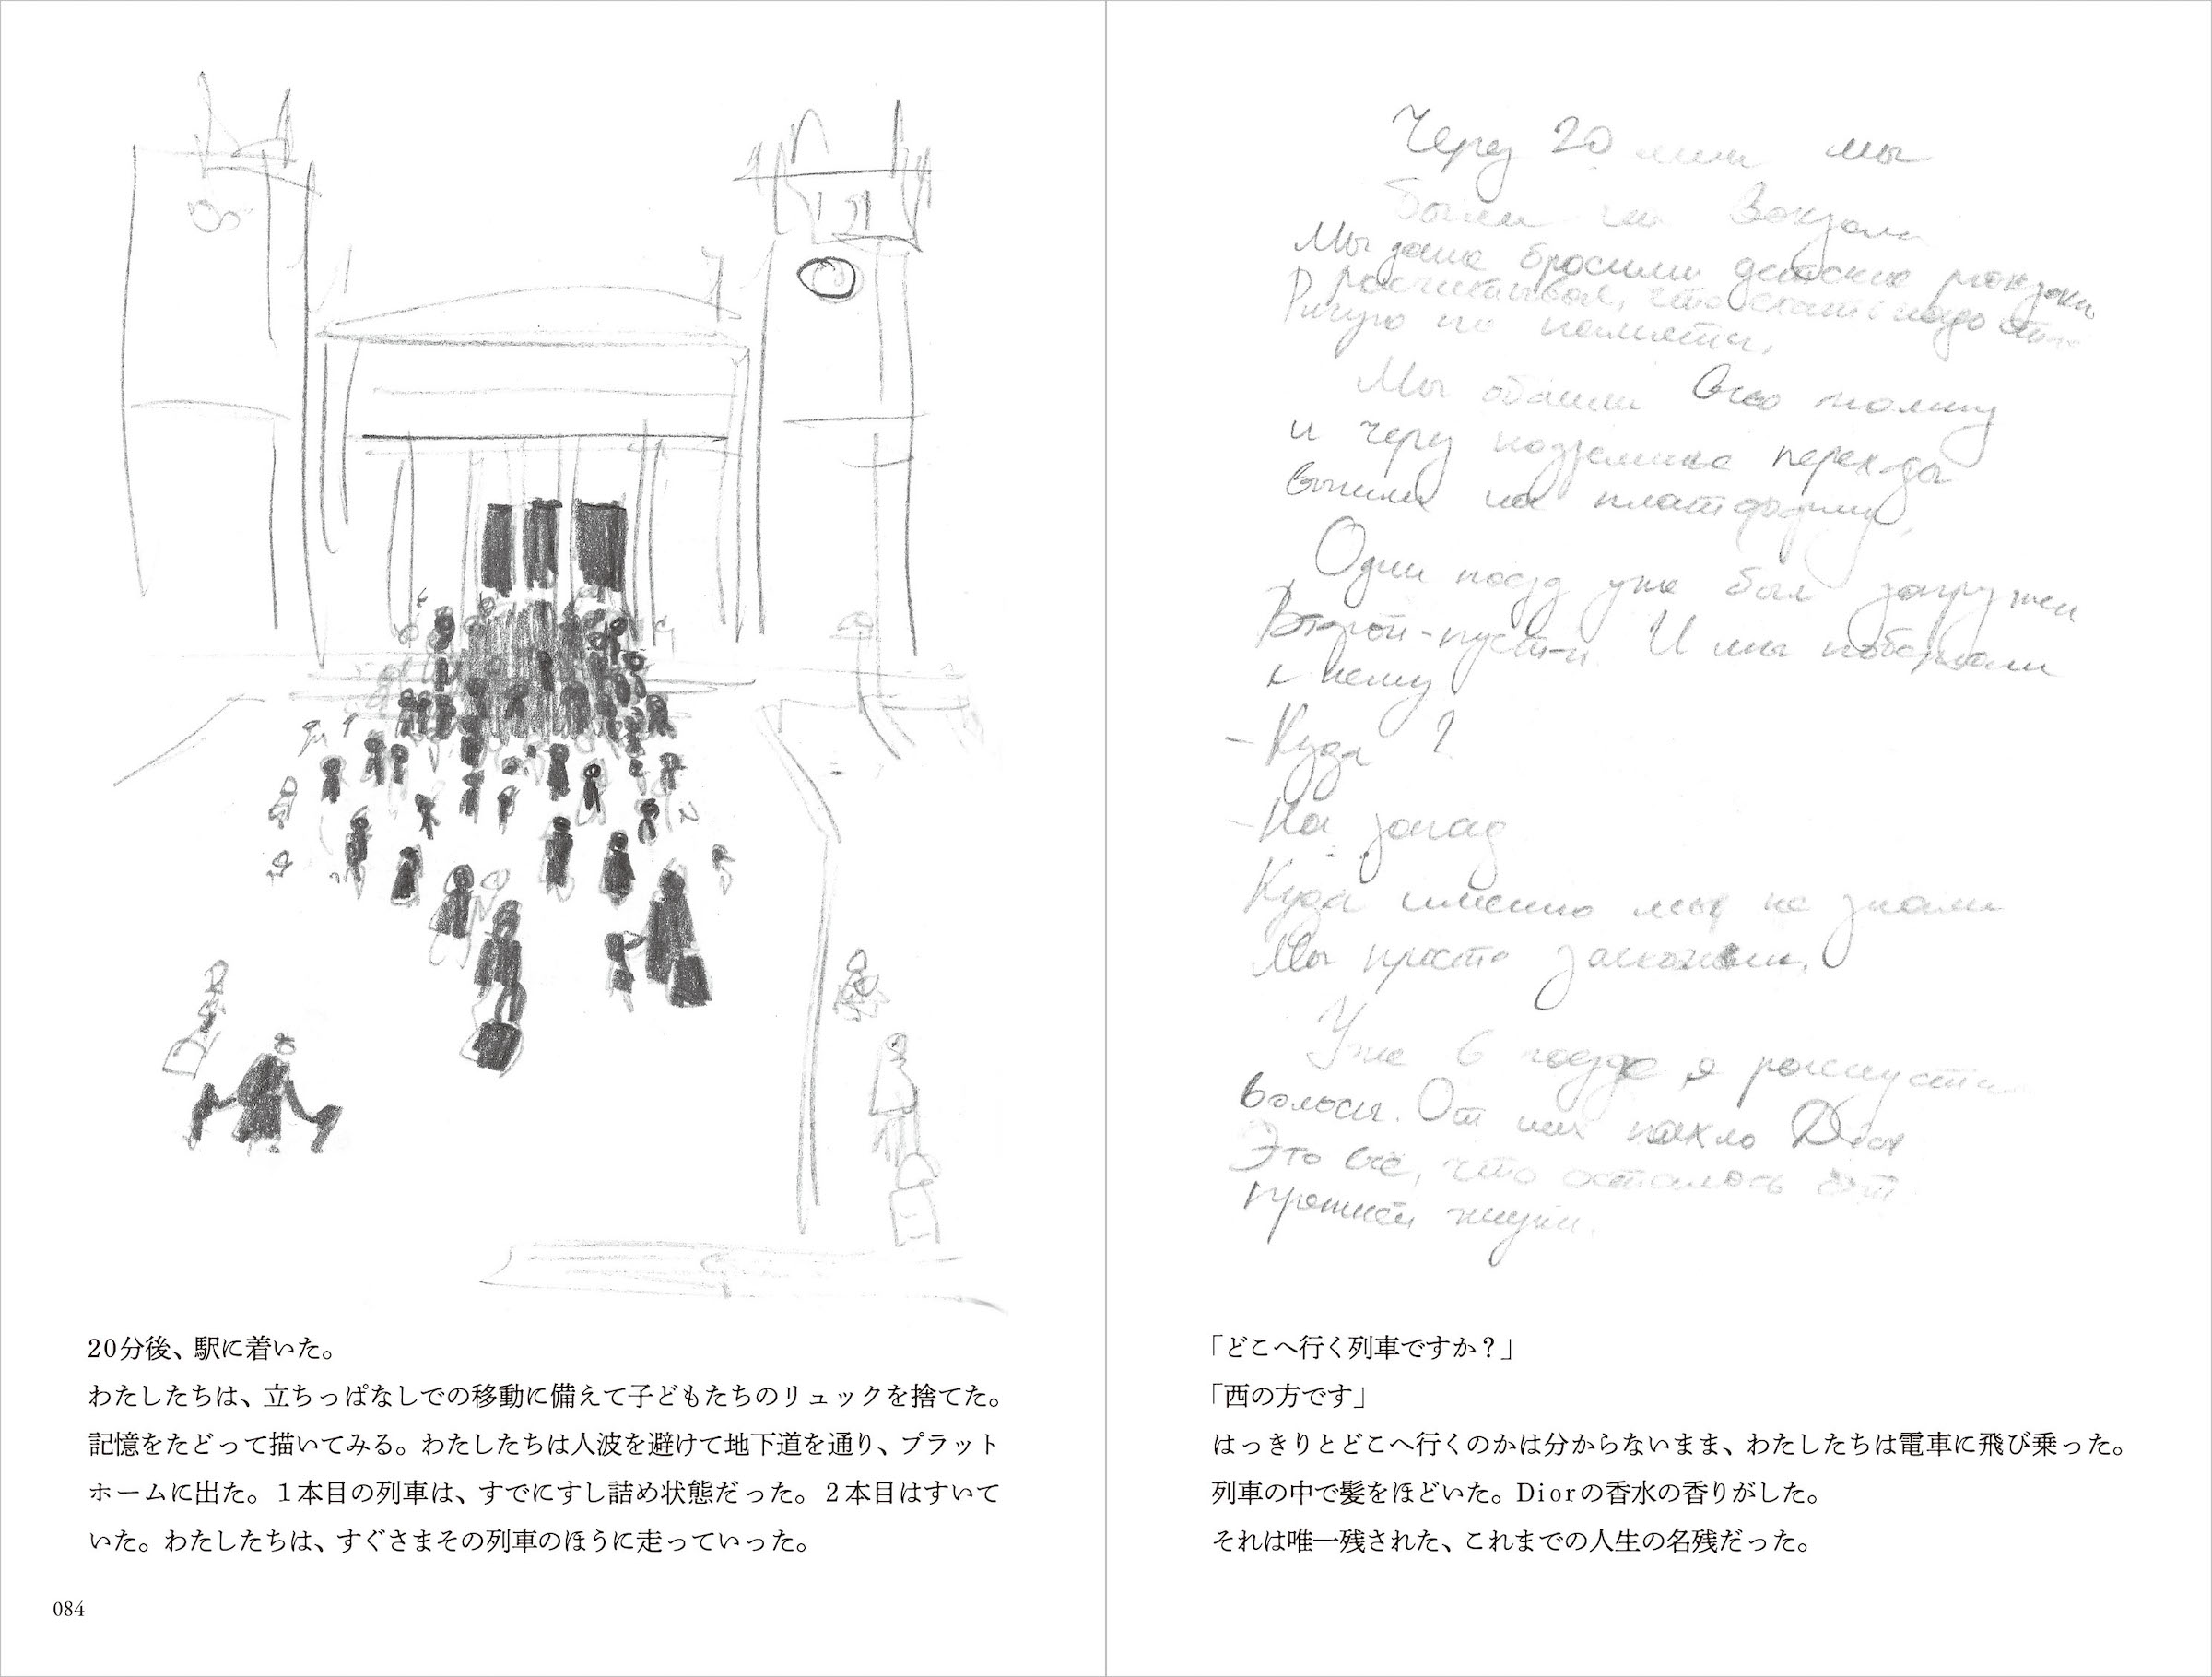 20分後、駅に着いた。
わたしたちは、立ちっぱなしでの移動に備えて子どもたちのリュックを捨てた。
記憶をたどって描いてみる。わたしたちは人波を避けて地下道を通り、プラット
ホームに出た。1本目の列車は、すでにすし詰め状態だった。2本目はすいて
いた。わたしたちは、すぐさまその列車のほうに走っていった。
084
Через 20 мин мы
были на вокзале
Мы даже бросили детские рюкзаки,
рассчитывая, что ехать надо стоя
Рисую по памяти.
Мы обошли всю толпу
и через подземные переходы
вышли на платформу.
Один поезд уже был загружен
Второй-пустой. И мы побежали
к нему
-Куда?
-На запад
Куда именно мы не знали
Мы просто
Уже в поезде я распустила
волосы. От них пахло Dior
Это всё, что осталось от
прошлой жизни.
「どこへ行く列車ですか？」
「西の方です」
はっきりとどこへ行くのかは分からないまま、わたしたちは電車に飛び乗った。
列車の中で髪をほどいた。Diorの香水の香りがした。
それは唯一残された、これまでの人生の名残だった。